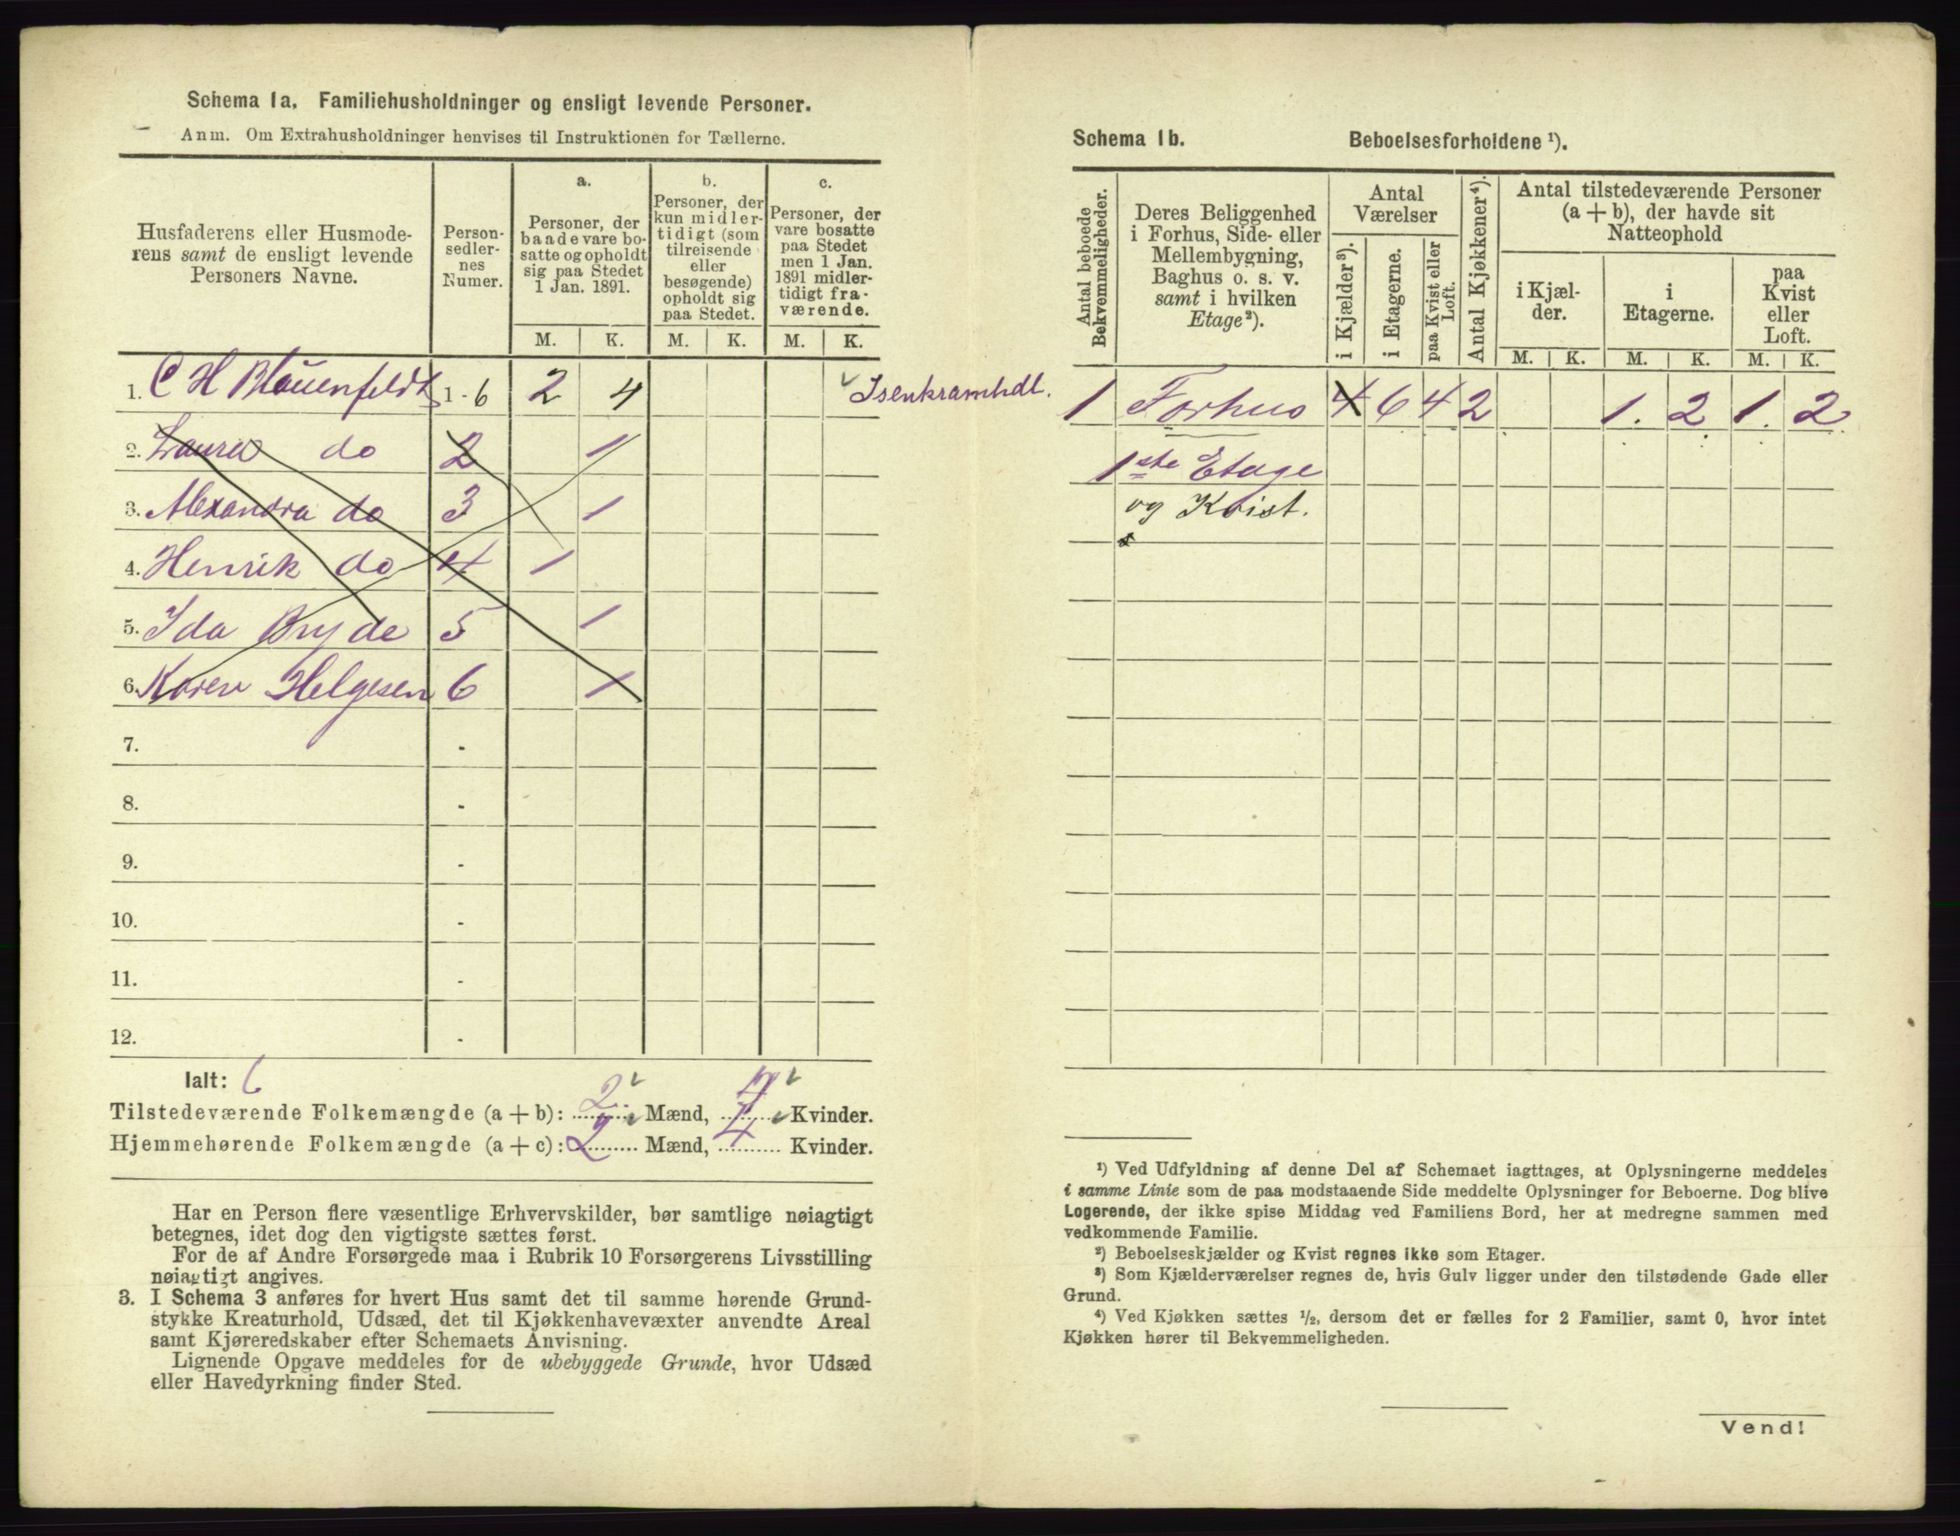 Schema 1a. Familiehusholdninger og ensligt levende Personer.
Anm. Om Extrahusholdninger henvises til Instruktionen for Tællerne.
Husfaderens eller Husmode-
rens samt de ensligt levende
Personers Navne.
Person-
sedler-
nes
Numer.
a.
Personer, der
baade vare bo-
satte og opholdt
sig paa Stedet
1 Jan. 1891.
b.
Personer, der
kun midler-
tidigt (som
tilreisende
eller
besøgende)
opholdt sig
paa Stedet.
c.
Personer, der
vare bosatte
paa Stedet
men 1 Jan.
1891 midler-
tidigt fra-
værende.
M. K. M. K. M. K.
1. C H Blauenfeldt 1-6 2 4 Isenkramhdl.
2. Laura do 2 1
3. Alexandra do 3 1
4. Henrik do 4 1
5. Ida Bryde 5 1
6. Karen Helgesen 6 1
7. -
8. -
9. -
10. -
11. -
12. -
Ialt: 6
Tilstedeværende Folkemængde (a + b): 2 Mænd, 4 Kvinder.
Hjemmehørende Folkemængde (a + c): 2 Mænd, 4 Kvinder.
Har en Person flere væsentlige Erhvervskilder, bør samtlige nøiagtigt
betegnes, idet dog den vigtigste sættes først.
For de af Andre Forsørgede maa i Rubrik 10 Forsørgerens Livsstilling
nøiagtigt angives.
3. I Schema 3 anføres for hvert Hus samt det til samme hørende Grund-
stykke Kreaturhold, Udsæd, det til Kjøkkenhavevæxter anvendte Areal
samt Kjøreredskaber efter Schemaets Anvisning.
Lignende Opgave meddeles for de ubebyggede Grunde, hvor Udsæd
eller Havedyrkning finder Sted.
Schema 1b. Beboelsesforholdene ¹).
Antal beboede
Bekvemmeligheder.
Deres Beliggenhed
i Forhus, Side- eller
Mellembygning,
Baghus o. s. v.
samt i hvilken
Etage²).
Antal
Værelser
i Kjælder³).
i Etagerne.
paa Kvist eller
Loft.
Antal Kjøkkener⁴).
Antal tilstedeværende Personer
(a + b), der havde sit
Natteophold
i Kjæl-
der.
i
Etagerne.
paa
Kvist
eller
Loft.
M. K. M. K. M. K.
1 Forhus 4 6 4 2 1. 2 1. 2
1ste Etage
og Kvist.
¹) Ved Udfyldning af denne Del af Schemaet iagttages, at Oplysningerne meddeles
i samme Linie som de paa modstaaende Side meddelte Oplysninger for Beboerne. Dog blive
Logerende, der ikke spise Middag ved Familiens Bord, her at medregne sammen med
vedkommende Familie.
²) Beboelseskjælder og Kvist regnes ikke som Etager.
³) Som Kjælderværelser regnes de, hvis Gulv ligger under den tilstødende Gade eller
Grund.
⁴) Ved Kjøkken sættes ½, dersom det er fælles for 2 Familier, samt 0, hvor intet
Kjøkken hører til Bekvemmeligheden.
Vend!